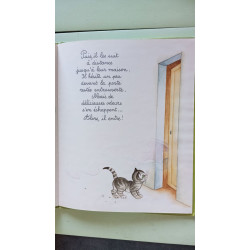 Puis, il les suit
à distance
jusqu'à leur maison.
Il hésite un peu
devant la porte
restée entrouverte.
Mais de
délicieuses odeurs
s'en échappent...
Alors, il entre !